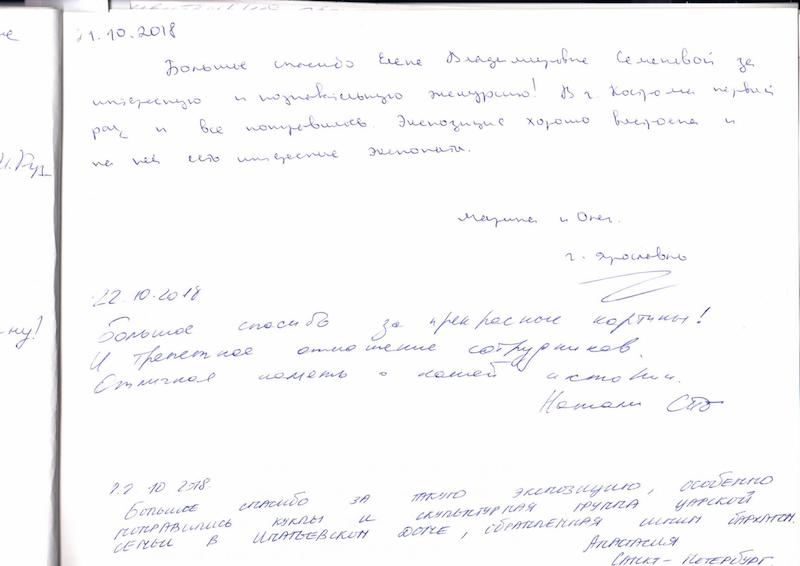 21.10.2018
Большое спасибо Елене Владимировне Семеновой за
интересную и познавательную экскурсию! В г. Кострома первый
раз и все понравилось. Экспозиция хорошо выстроена и
на ней есть интересные экспонаты.
Марина и Олег.
г. Ярославль
22.10.2018
Большое спасибо за прекрасные картины!
И трепетное отношение сотрудников.
Отличная память о нашей истории.
Натали СПб
22 10 2018.
Большое спасибо за такую экспозицию, особенно
понравились куклы и скульптурная группа царской
семьи в Ипатьевском доме, обрамленная синим бархатом.
Анастасия
Санкт-Петербург.
ну!